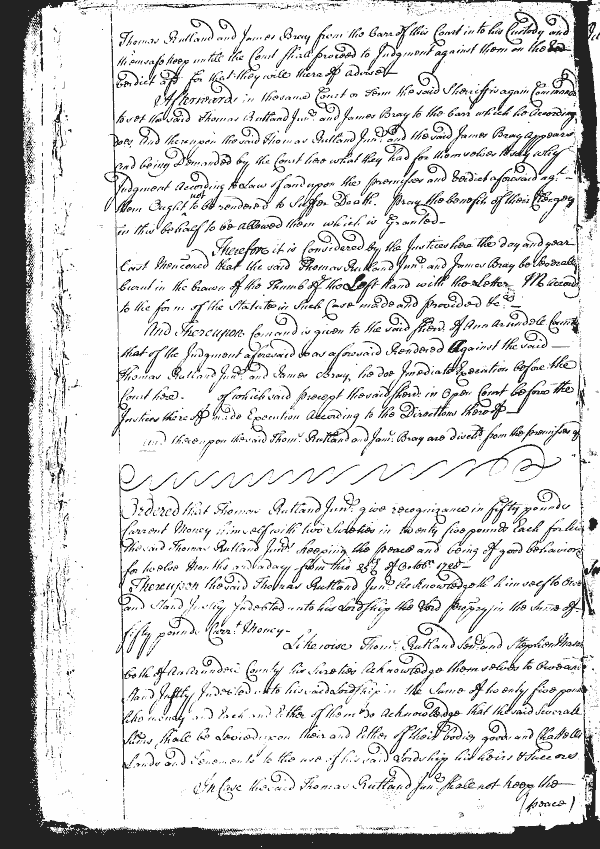 Thomas Rutland and James Bray from the barr of this Court into his Custody and
them safe keep until the Court shall proceed to Judgment against them on the
verdict afd. for that they will thereof advise
Afterwards in the same Court or Term the said Sheriff is again Command
to set the said Thomas Rutland Junr. and James Bray to the barr which he According
does And thereupon the said Thomas Rutland Junr. and the said James Bray Appears
and being Demanded by the Court here what they had for themselves to say why
Judgment According to Law of and upon the premises and verdict aforesaid agt.
them Ought not to be rendered to Suffer Death. Pray the benefit of their Clergy
in this behalf to be allowed them which is Granted
Therefore it is Considered by the Justices here the day and year
Last Menconed that the said Thomas Rutland Junr. and James Bray be severally
burnt in the brawn of the Thumb of the Left hand with the Letter M accord
to the form of the Statute in Such Case made and provided &c.
And Thereupon Comand is given to the said Sherd. of Ann Arundele County
that of the Judgment aforesaid as aforesaid Rendered Against the said
Thomas Rutland Junr. and James Bray, he doe Imediate Execution before the
Court here. of which said precept the said Sherd. in Open Court before the
Justices thereof made Execution According to the Directions thereof
and thereupon the said Thoms. Rutland and Jams. Bray are discd. from the premises &c
Ordered that Thomas Rutland Junr. give recognizance in fifty pounds
Currant Money himself with two Sureties in twenty five pounds Each for
the said Thomas Rutland Junr. keeping the peace and being of good behaviour
for twelve Months and a day from this of Octobr. 1728
Thereupon the said Thomas Rutland Junr. Acknowledgeth himself to Owe
and Stand Justly Indebted unto his Lordship the Lord propry in the Sume of
fifty pounds Currt. Money
Likewise Thoms. Rutland Senr. and Stephen
both of Ann Arundele County his Sureties Acknowledge themselves to Owe and
Stand Justly Indebted unto his said Lordship in the Sume of twenty five pounds
Like money and Each and Either of them do Acknowledge that the said severall
Sums shall be Levied upon their and Either of their bodies goods and Chattells
Lands and Tenements to the use of his said Lordship his heirs & Successors
In Case the said Thomas Rutland Junr. Shall not keep the
(peace)